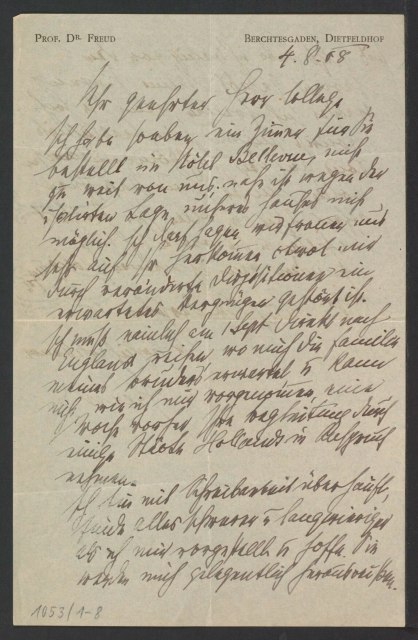 PROF. DR. FREUD BERCHTESGADEN, DIETFELDHOF
4. 8. 08
Sehr geehrter Herr College
Ich habe soeben ein Zimmer für Sie
bestellt im Hôtel Bellevue, nicht
zu weit von uns. näher ist wegen der
isolirten Lage unseres Hauses nicht
möglich. Ich darf sagen wir freuen uns
sehr auf Ihr Herkommen obwol mir
durch veränderte Dispositionen ein
erwartetes Vergnügen gestört ist.
Ich muß nämlich am 1 Sept direkt nach
England reisen, wo mich die Familie
meines Bruders erwartet u kann
nicht, wie ich mir vorgenommen, eine
Woche vorher Ihre Begleitung durch
einige Städte Hollands in Anspruch
nehmen.
Ich bin mit Schreibarbeit überhäuft,
finde alles schwerer u langwieriger
als ich mir vorgestellt u hoffe Sie
werden mich gelegentlich herausreißen.
1053/1-8